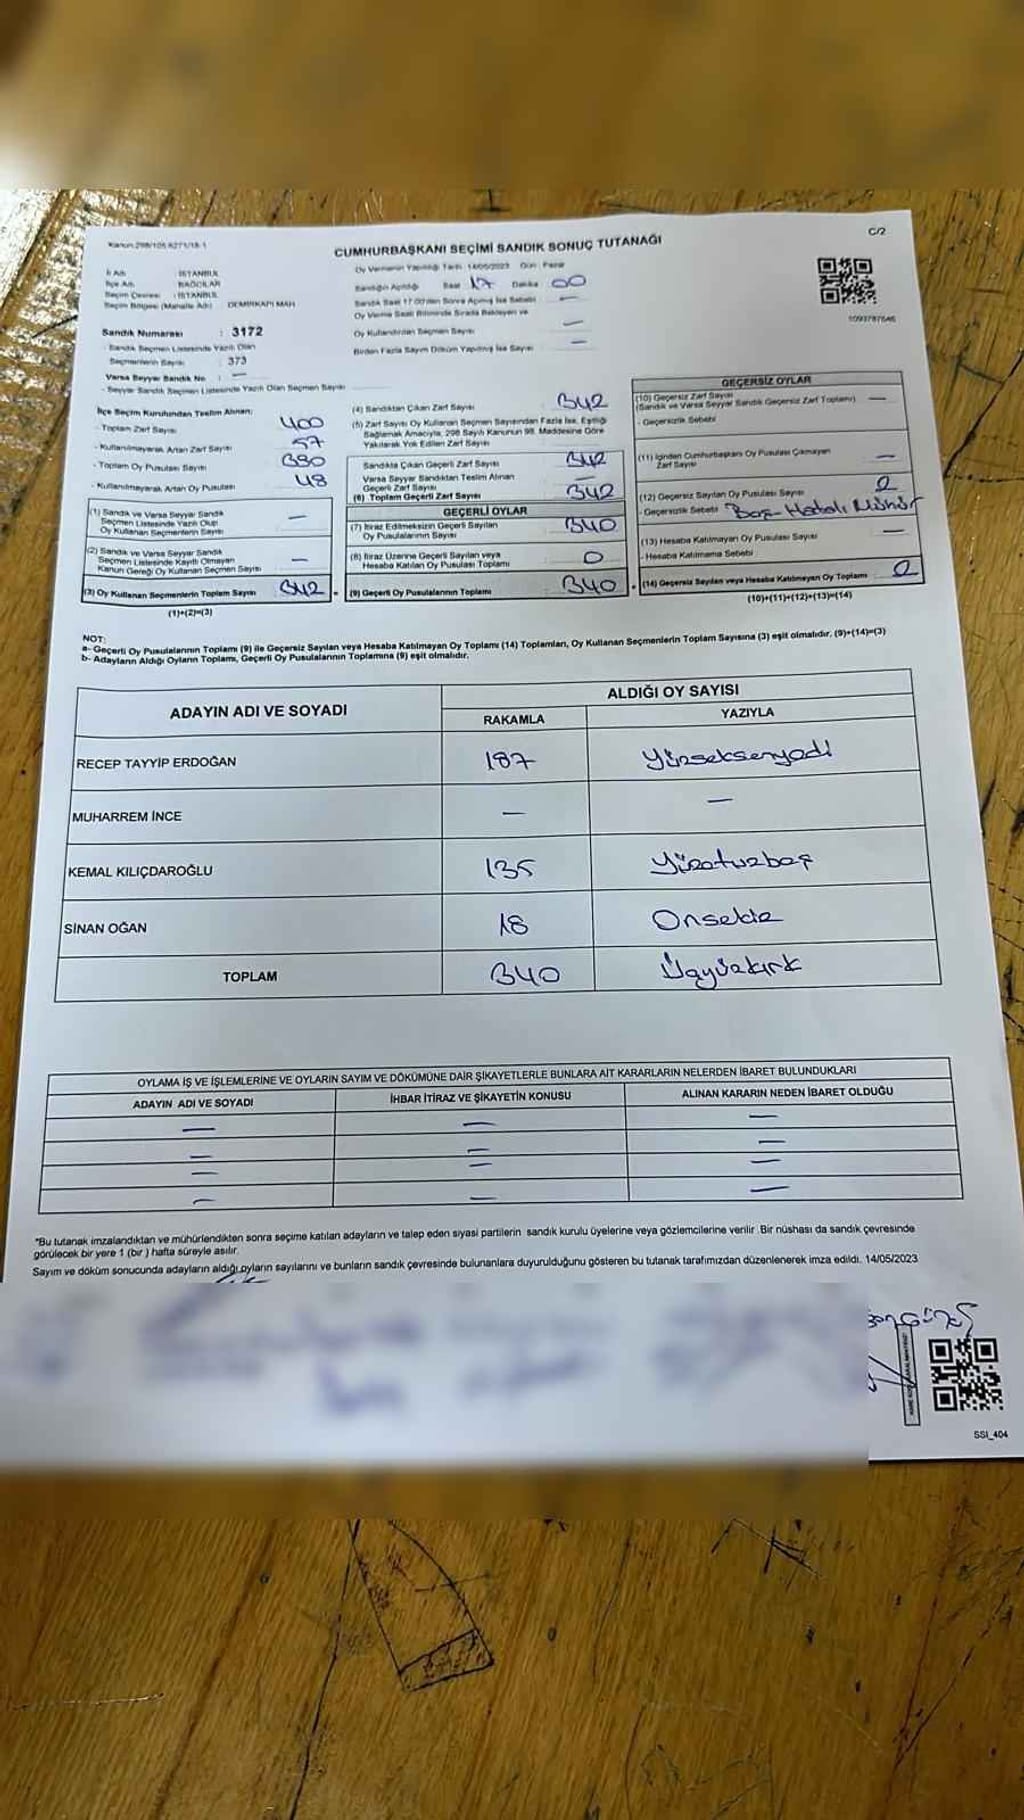 Kanun:298/105 6271/18-1
C/2
CUMHURBAŞKANI SEÇİMİ SANDIK SONUÇ TUTANAĞI
İl Adı : İSTANBUL
İlçe Adı : BAĞCILAR
Seçim Çevresi : İSTANBUL
Seçim Bölgesi (Mahalle Adı) DEMİRKAPI MAH
Sandık Numarası : 3172
- Sandık Seçmen Listesinde Yazılı Olan
Seçmenlerin Sayısı : 373
Varsa Seyyar Sandık No : —
- Seyyar Sandık Seçmen Listesinde Yazılı Olan Seçmen Sayısı
Oy Vermenin Yapıldığı Tarih: 14/05/2023 Gün: Pazar
Sandığın Açıldığı Saat 17 Dakika 00
Sandık Saat 17.00'den Sonra Açılmış İse Sebebi —
Oy Verme Saati Bitiminde Sırada Bekleyen ve
Oy Kullandırılan Seçmen Sayısı —
Birden Fazla Sayım Döküm Yapılmış İse Sayısı —
1093787646
İlçe Seçim Kurulundan Teslim Alınan:
- Toplam Zarf Sayısı 400
- Kullanılmayarak Artan Zarf Sayısı 57
- Toplam Oy Pusulası Sayısı
- Kullanılmayarak Artan Oy Pusulası 48
(1) Sandık ve Varsa Seyyar Sandık
Seçmen Listesinde Yazılı Olup
Oy Kullanan Seçmen Sayısı —
(2) Sandık ve Varsa Seyyar Sandık
Seçmen Listesinde Kayıtlı Olmayan
Kanun Gereği Oy Kullanan Seçmen Sayısı —
(3) Oy Kullanan Seçmenlerin Toplam Sayısı 342
(1)+(2)=(3)
(4) Sandıktan Çıkan Zarf Sayısı 342
(5) Zarf Sayısı Oy Kullanan Seçmen Sayısından Fazla İse, Eşitliği
Sağlamak Amacıyla, 298 Sayılı Kanunun 98. Maddesine Göre
Yakılarak Yok Edilen Zarf Sayısı
Sandıkta Çıkan Geçerli Zarf Sayısı 342
Varsa Seyyar Sandıktan Teslim Alınan
Geçerli Zarf Sayısı —
(6) Toplam Geçerli Zarf Sayısı 342
GEÇERLİ OYLAR
(7) İtiraz Edilmeksizin Geçerli Sayılan
Oy Pusulalarının Sayısı 340
(8) İtiraz Üzerine Geçerli Sayılan veya
Hesaba Katılan Oy Pusulası Toplamı 0
(9) Geçerli Oy Pusulalarının Toplamı 340
GEÇERSİZ OYLAR
(10) Geçersiz Zarf Sayısı
(Sandık ve Varsa Seyyar Sandık Geçersiz Zarf Toplamı) —
- Geçersizlik Sebebi
(11) İçinden Cumhurbaşkanı Oy Pusulası Çıkmayan
Zarf Sayısı —
(12) Geçersiz Sayılan Oy Pusulası Sayısı 2
- Geçersizlik Sebebi Boş- Hatalı Mühür
(13) Hesaba Katılmayan Oy Pusulası Sayısı —
- Hesaba Katılmama Sebebi
(14) Geçersiz Sayılan veya Hesaba Katılmayan Oy Toplamı 2
(10)+(11)+(12)+(13)=(14)
NOT:
a- Geçerli Oy Pusulalarının Toplamı (9) ile Geçersiz Sayılan veya Hesaba Katılmayan Oy Toplamı (14) Toplamları, Oy Kullanan Seçmenlerin Toplam Sayısına (3) eşit olmalıdır. (9)+(14)=(3)
b- Adayların Aldığı Oyların Toplamı, Geçerli Oy Pusulalarının Toplamına (9) eşit olmalıdır.
ADAYIN ADI VE SOYADI ALDIĞI OY SAYISI
RAKAMLA YAZIYLA
RECEP TAYYİP ERDOĞAN 187 Yüzseksenyedi
MUHARREM İNCE — —
KEMAL KILIÇDAROĞLU 135 Yüzotuzbeş
SİNAN OĞAN 18 Onsekiz
TOPLAM 340 Üçyüzkırk
OYLAMA İŞ VE İŞLEMLERİNE VE OYLARIN SAYIM VE DÖKÜMÜNE DAİR ŞİKAYETLERLE BUNLARA AİT KARARLARIN NELERDEN İBARET BULUNDUKLARI
ADAYIN ADI VE SOYADI İHBAR İTİRAZ VE ŞİKAYETİN KONUSU ALINAN KARARIN NEDEN İBARET OLDUĞU
— — —
— — —
— — —
— — —
*Bu tutanak imzalandıktan ve mühürlendikten sonra seçime katılan adayların ve talep eden siyasi partilerin sandık kurulu üyelerine veya gözlemcilerine verilir .Bir nüshası da sandık çevresinde
görülecek bir yere 1 (bir ) hafta süreyle asılır.
Sayım ve döküm sonucunda adayların aldığı oyların sayılarını ve bunların sandık çevresinde bulunanlara duyurulduğunu gösteren bu tutanak tarafımızdan düzenlenerek imza edildi. 14/05/2023
SSI_404